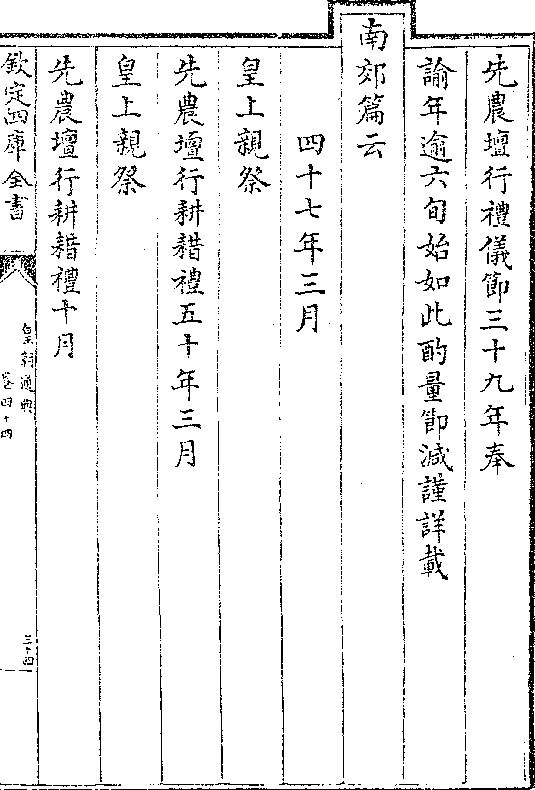 先農壇行禮儀節三十九年奉
諭年逾六旬始如此酌量節減謹詳載
南郊篇云
四十七年三月
皇上親祭
先農壇行耕耤禮五十年三月
皇上親祭
先農壇行耕耤禮十月
欽定四庫全書
皇朝通典
卷四十四
三十四